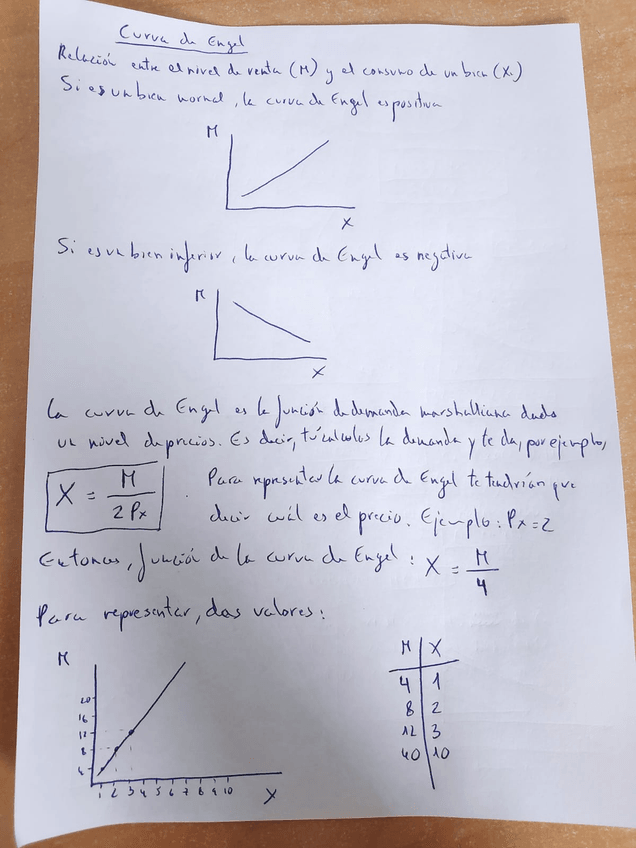 Curva de Engel
Relación entre el nivel de renta (M) y el consumo de un bien (X)
Si es un bien normal, la curva de Engel es positiva
M
X
Si es un bien inferior, la curva de Engel es negativa
M
X
La curva de Engel es la función de demanda marshalliana dado
un nivel de precios. Es decir, tú calculas la demanda y te da, por ejemplo,
X = M / 2Px . Para representar la curva de Engel te tendrían que
decir cuál es el precio. Ejemplo: Px = 2
Entonces, función de la curva de Engel: X = M / 4
Para representar, das valores:
M
20
16
12
8
4
1 2 3 4 5 6 7 8 9 10
X
M X
4 1
8 2
12 3
40 10